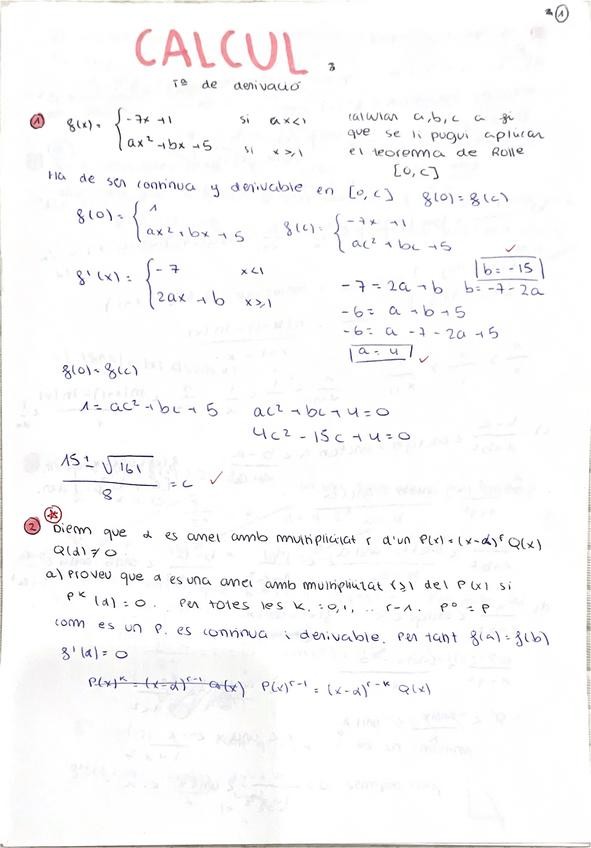 1
CALCUL
Tª de derivació
1 f(x) = { -7x+1 si x<1 calcular a, b, c a fi
ax² + bx + 5 si x≥1 que se li pugui aplicar
el teorema de Rolle
[0, c]
Ha de ser continua y derivable en [0, c] f(0) = f(c)
f(0) = { 1 f(c) = { -7x+1
ax² + bx + 5 ac² + bc + 5
f'(x) = { -7 x<1
2ax + b x≥1
-7 = 2a + b b = -7-2a
b = -15
-6 = a + b + 5
-6 = a - 7 - 2a + 5
a = 4
f(0) = f(c)
1 = ac² + bc + 5 ac² + bc + 4 = 0
4c² - 15c + 4 = 0
15 ± √161 / 8 = c
2 Diem que α es arrel amb multiplicitat r d'un P(x) = (x-α)^r Q(x)
Q(α) ≠ 0
a) Proveu que α es una arrel amb multiplicitat r≥1 del P(x) si
P^k (α) = 0. Per totes les k = 0, 1, .. r-1. P° = P
com es un P. es continua i derivable. Per tant f(a) = f(b)
f'(α) = 0
P(x)^k = (x-α)^r-1 Q(x) P(x)^r-1 = (x-α)^r-k Q(x)